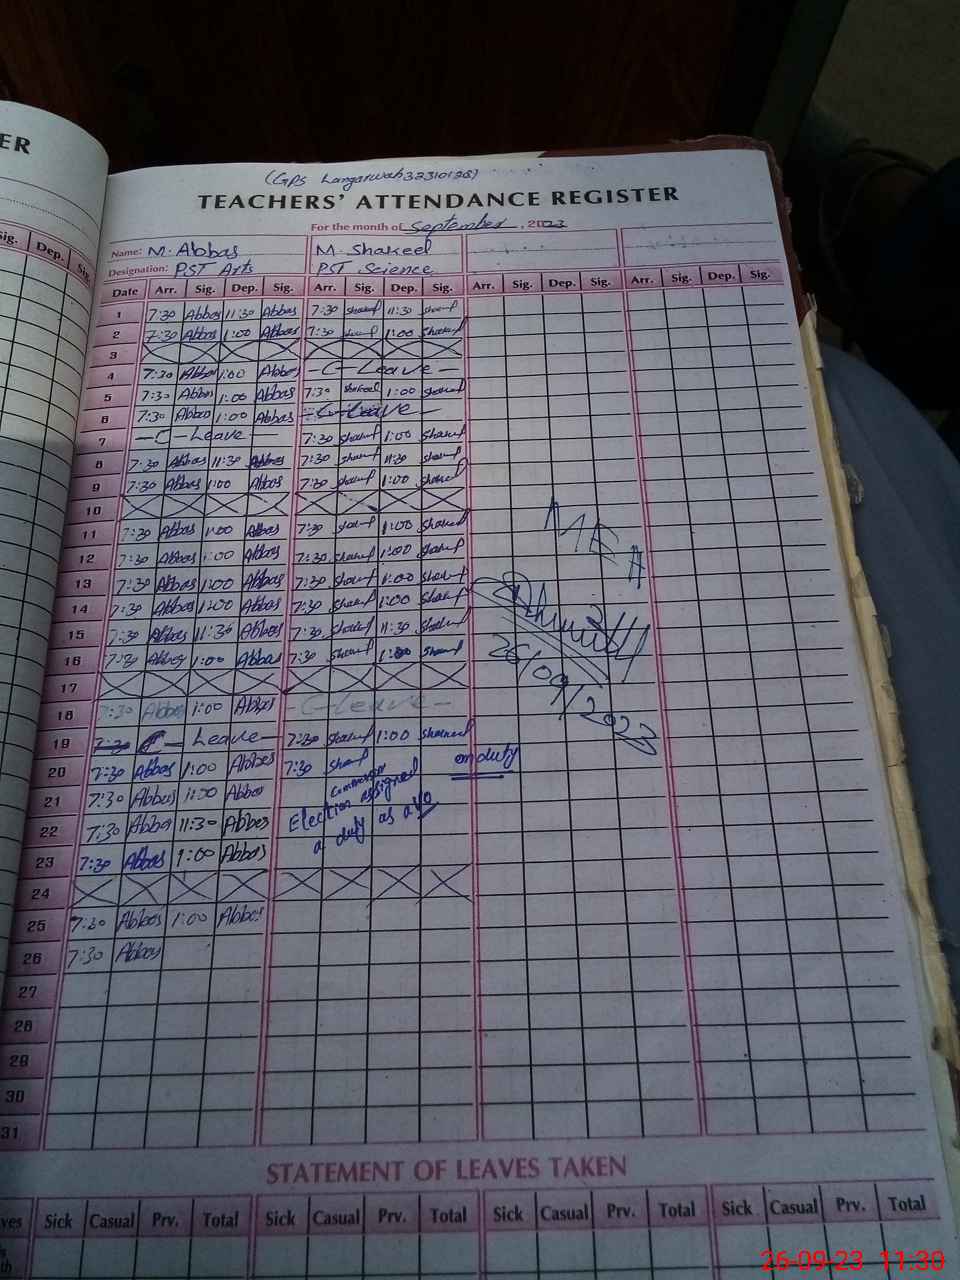 ER
(GPS Langarwah 32310128)
TEACHERS' ATTENDANCE REGISTER
For the month of September, 2023
Name: M. Abbas M. Shakeel
Designation: PST Arts PST Science
Sig. Dep. Sig.
Date Arr. Sig. Dep. Sig. Arr. Sig. Dep. Sig. Arr. Sig. Dep. Sig. Arr. Sig. Dep. Sig.
1 7:30 Abbas 11:30 Abbas 7:30 Shakeel 11:30 Shakeel
2 7:30 Abbas 1:00 Abbas 7:30 Shakeel 1:00 Shakeel
3
4 7:30 Abbas 1:00 Abbas - C - Leave -
5 7:30 Abbas 1:00 Abbas 7:30 Shakeel 1:00 Shakeel
6 7:30 Abbas 1:00 Abbas - C - Leave -
7 - C - Leave - 7:30 Shakeel 1:00 Shakeel
8 7:30 Abbas 11:30 Abbas 7:30 Shakeel 11:30 Shakeel
9 7:30 Abbas 1:00 Abbas 7:30 Shakeel 1:00 Shakeel
10
11 7:30 Abbas 1:00 Abbas 7:30 Shakeel 1:00 Shakeel
12 7:30 Abbas 1:00 Abbas 7:30 Shakeel 1:00 Shakeel
13 7:30 Abbas 1:00 Abbas 7:30 Shakeel 1:00 Shakeel
14 7:30 Abbas 1:00 Abbas 7:30 Shakeel 1:00 Shakeel
15 7:30 Abbas 11:30 Abbas 7:30 Shakeel 11:30 Shakeel
16 7:30 Abbas 1:00 Abbas 7:30 Shakeel 1:00 Shakeel
17
18 7:30 Abbas 1:00 Abbas - C - Leave -
19 7:30 C - Leave - 7:30 Shakeel 1:00 Shakeel
20 7:30 Abbas 1:00 Abbas 7:30 Shakeel on duty
21 7:30 Abbas 1:00 Abbas
Election commission assigned
22 7:30 Abbas 11:30 Abbas
a duty as a
23 7:30 Abbas 1:00 Abbas
24
25 7:30 Abbas 1:00 Abbas
26 7:30 Abbas
27
28
29
30
31
MEA
26/09/2023
STATEMENT OF LEAVES TAKEN
ves Sick Casual Prv. Total Sick Casual Prv. Total Sick Casual Prv. Total Sick Casual Prv. Total
26-09-23 11:30